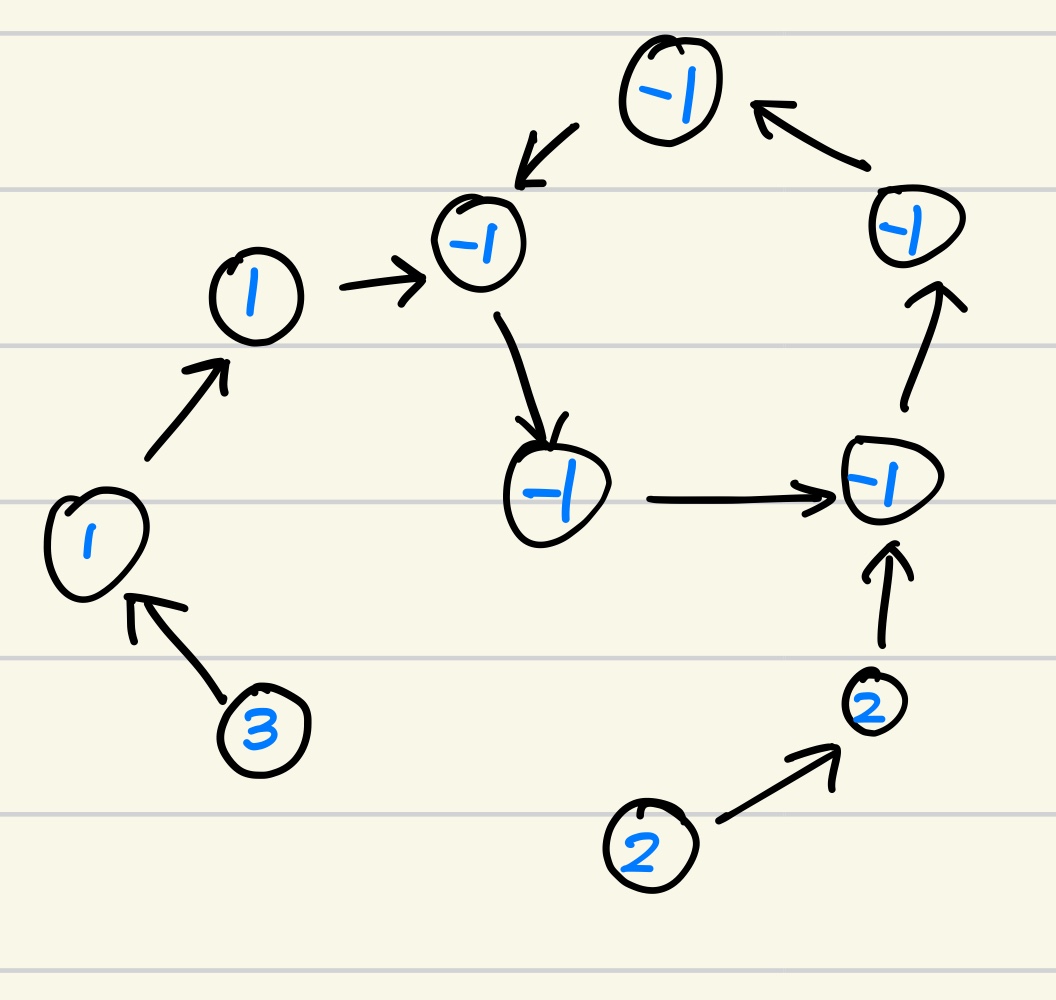 -1
-1
-1
1
-1
-1
1
2
3
2